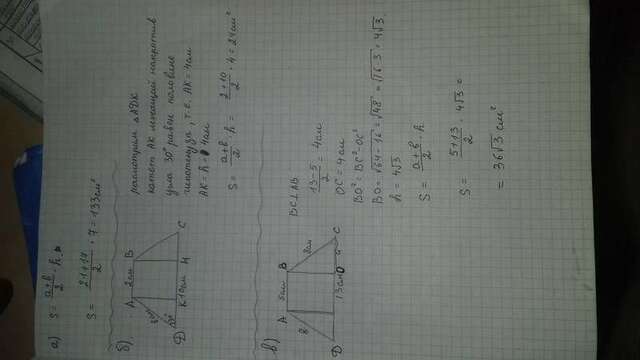 а) S = a+b/2 · h
S = 21+17/2 · 7 = 133 см²
б)
A 2см B
8см
30°
D K 10см H C
рассмотрим ΔADK
катет AK лежащий напротив
угла 30° равен половине
гипотенузы, т.е. AK = 4см
AK = h = 4см
S = a+b/2 · h = 2+10/2 · 4 = 24см²
в)
A 5см B
8 8см
D 13см O C
DC⊥AB
13-5/2 = 4см
OC = 4см
BO² = BC² - OC²
BO = √64-16 = √48 = √16·3 = 4√3
h = 4√3
S = a+b/2 · h
S = 5+13/2 · 4√3 =
= 36√3 см²